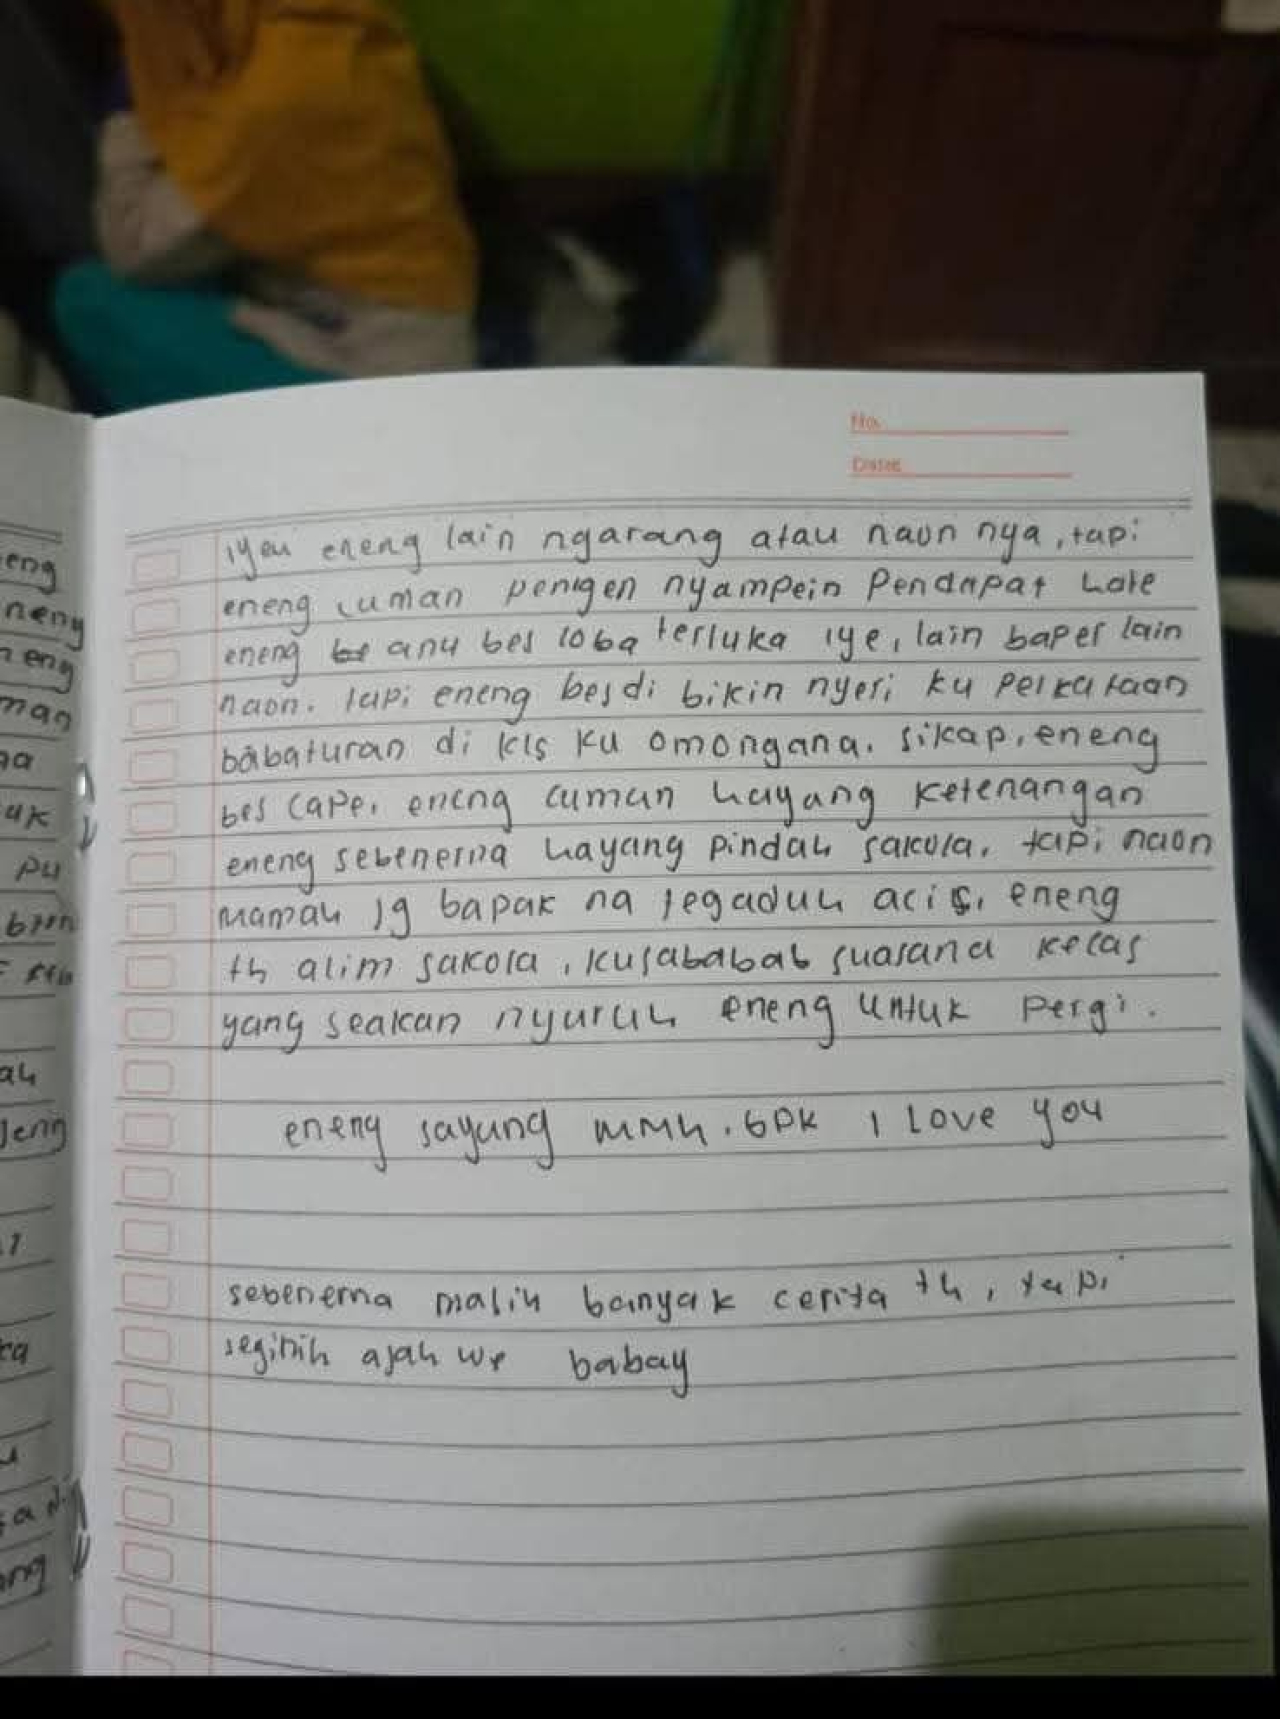 No.
Date
iyeu eneng lain ngarang atau naon nya, tapi
eneng cuman pengen nyampein Pendapat hate
eneng anu bes loba terluka iye, lain baper lain
naon. tapi eneng bes di bikin nyeri ku perkataan
babaturan di kls ku omongana. sikap, eneng
bes cape. eneng cuman hayang ketenangan
eneng sebenerna hayang pindah sakola. tapi naon
mamah jg bapak na tegaduh acis, eneng
th alim sakola, kusababab suasana kelas
yang seakan nyuruh eneng untuk pergi.
eneng sayang mmh. bpk I Love you
sebenerna malih banyak cerita th, tapi
seginih ajah we babay
eng
neng
eng
man
na
uk
pu
ah
jeng
ca
ang